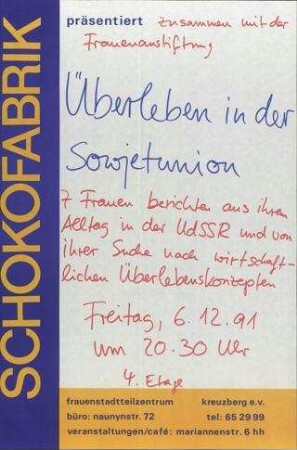 SCHOKOFABRIK
präsentiert zusammen mit der
Frauenanstiftung
Überleben in der
Sowjetunion
7 Frauen berichten aus ihrem
Alltag in der UdSSR und von
ihrer Suche nach wirtschaft-
lichen Überlebenskonzepten
Freitag, 6.12.91
um 20.30 Uhr
4. Etage
frauenstadtteilzentrum kreuzberg e.v.
büro: naunynstr. 72 tel: 65 29 99
veranstaltungen/café: mariannenstr. 6 hh